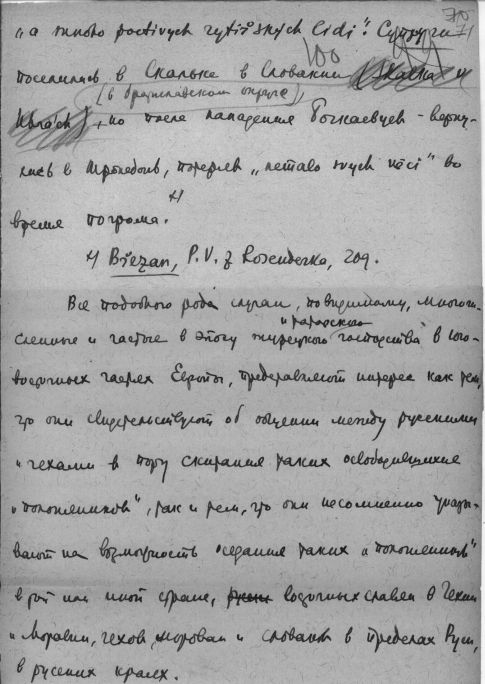 „a mnoho poctivých rytířských lidí“. Супруги
100
поселились в Скальке в Словакии (Skalka u
(в братиславском округе),
, но после нападения Бочкаевцев - верну-
лись в Тршебонь, потеряв „nemálo svých věcí“ во
время погрома. х)
х) Březan, P. V. z Rosenberka, 209.
Все подобного рода случаи, по видимому, многочи-
и татарского
сленные и частые в эпоху турецкого господства в юго-
восточных частях Европы, представляют интерес как тем,
что они свидетельствуют об общении между русскими
и чехами в пору скитания таких освободившихся
„полоняников“, так и тем, что они несомненно указы-
вают на возможность оседания таких „полоняников“
в той или иной стране, восточных славян в Чехии
и Моравии, чехов, морован и словаков в пределах Руси,
в русских краях.